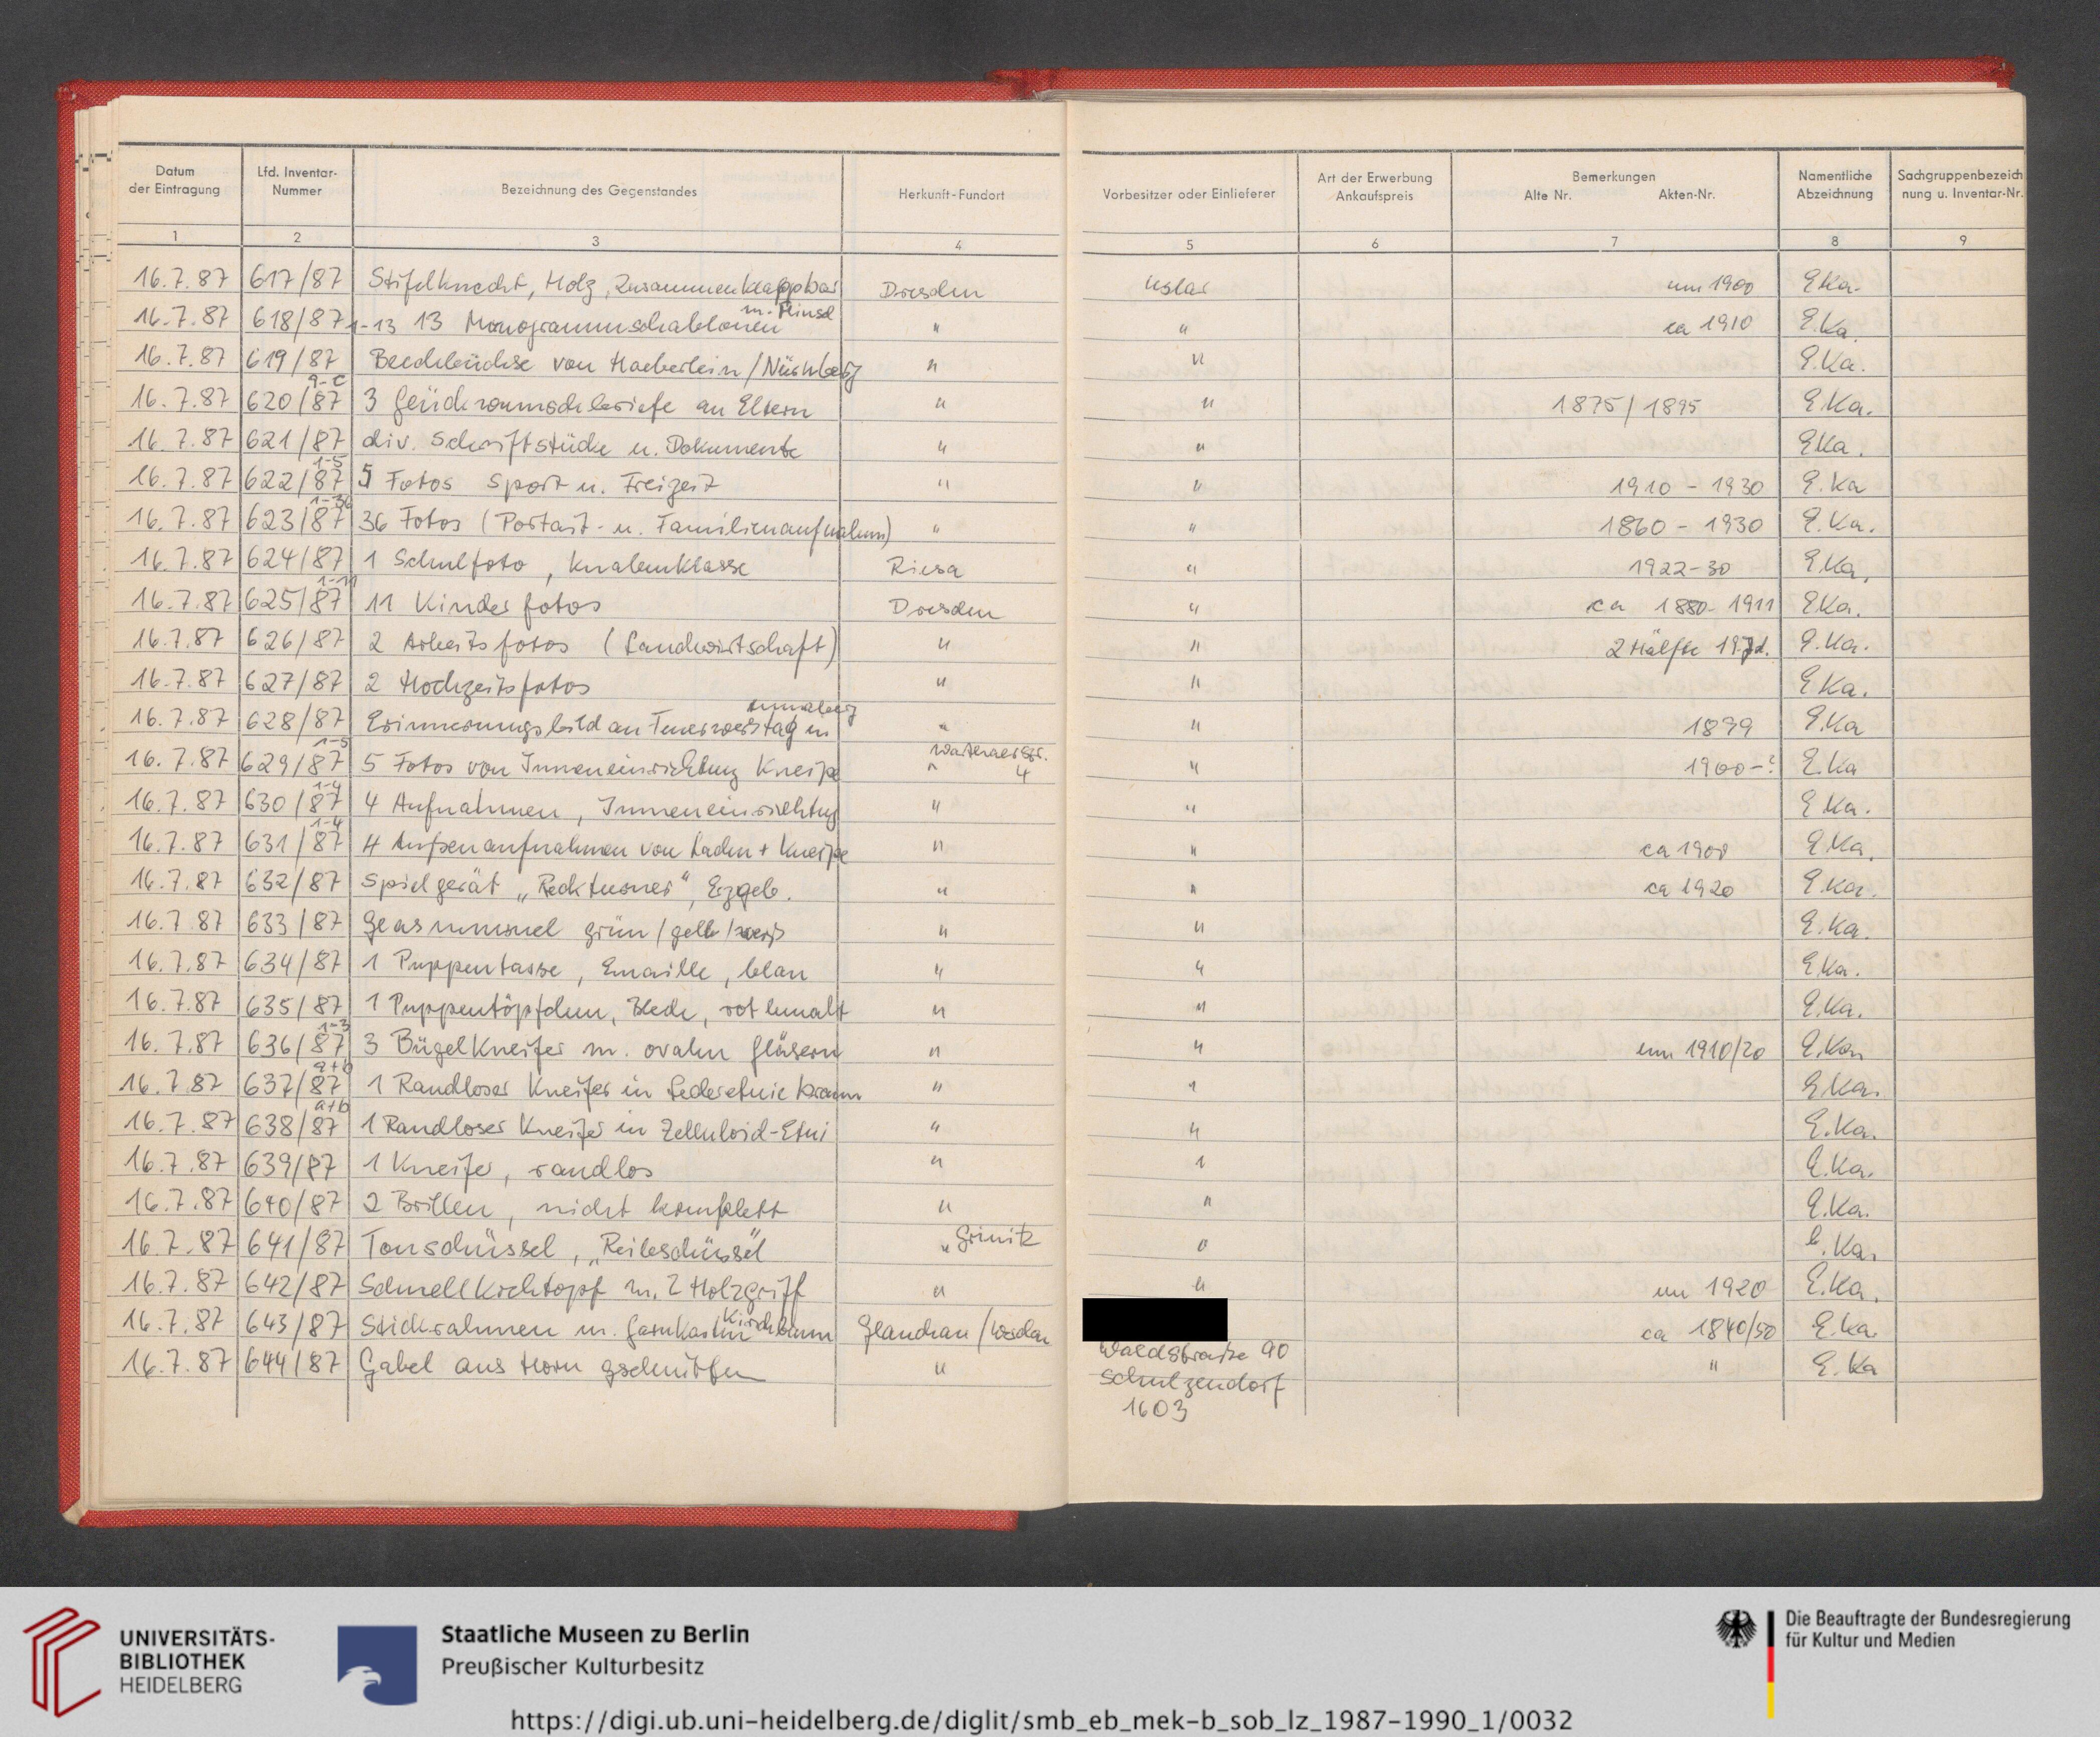 Datum der Eintragung | Lfd. Inventar-Nummer | Bezeichnung des Gegenstandes | Herkunft-Fundort | Vorbesitzer oder Einlieferer | Art der Erwerbung Ankaufspreis | Bemerkungen Alte Nr. Akten-Nr. | Namentliche Abzeichnung | Sachgruppenbezeichnung u. Inventar-Nr.
1 2 3 4 5 6 7 8 9
16.7.87 617/87 Stifelknecht, Holz, zusammenklappbar Dresden Uslar um 1900 E.Ka.
16.7.87 618/87 1-13 13 Monogrammschablonen m. Pinsel " " ca 1910 E.Ka.
16.7.87 619/87 Blechbüchse von Haeberlein/Nürnberg " " E.Ka.
16.7.87 620/87 a-c 3 Glückwunschbriefe an Eltern " " 1875/1895 E.Ka.
16.7.87 621/87 div. Schriftstücke u. Dokumente " " E.Ka.
16.7.87 622/87 1-5 5 Fotos Sport u. Freizeit " " 1910-1930 E.Ka
16.7.87 623/87 1-36 36 Fotos (Portait- u. Familienaufnahmen) " " 1860-1930 E.Ka.
16.7.87 624/87 1 Schulfoto, Knabenklasse Riesa " 1922-30 E.Ka.
16.7.87 625/87 1-11 11 Kinderfotos Dresden " ca 1880-1911 E.Ka.
16.7.87 626/87 2 Arbeitsfotos (Landwirtschaft) " " 2 Hälfte 19.Jd. E.Ka.
16.7.87 627/87 2 Hochzeitsfotos " " E.Ka.
16.7.87 628/87 Erinnerungsbild an Feuerwerstag in Annaberg " " 1899 E.Ka
16.7.87 629/87 1-5 5 Fotos von Inneneinrichtung Kneipe " 4 " 1900-? E.Ka
16.7.87 630/87 1-4 4 Aufnahmen, Inneneinrichtug " " E.Ka.
16.7.87 631/87 1-4 4 Außenaufnahmen von Laden + Kneipe " " ca 1900 E.Ka.
16.7.87 632/87 Spielgerät „Reckturner", Erzgeb. " " ca 1920 E.Ka.
16.7.87 633/87 Glasmurmel grün/gelb/weiß " " E.Ka.
16.7.87 634/87 1 Puppentasse, Emaille, blau " " E.Ka.
16.7.87 635/87 1 Puppentöpfchen, Blech, rot bemalt " " E.Ka.
16.7.87 636/87 1-3 3 Bügelkneifer m. ovalen Gläsern " " um 1910/20 E.Ka.
16.7.87 637/87 a+b 1 Randloser Kneifer in Lederetuie braun " " E.Ka.
16.7.87 638/87 a+b 1 Randloser Kneifer in Zelluloid-Etui " " E.Ka.
16.7.87 639/87 1 Kneifer, randlos " " E.Ka.
16.7.87 640/87 2 Brillen, nicht komplett " " E.Ka.
16.7.87 641/87 Tonschüssel, „Reibeschüssel" " " E.Ka.
16.7.87 642/87 Schnellkochtopf m. 2 Holzgriff " " um 1920 E.Ka.
16.7.87 643/87 Stickrahmen m. Garnkasten Kirschbaum Glauchau/Werdau ca 1840/50 E.Ka.
16.7.87 644/87 Gabel aus Horn gschnitten " Waldstraße 90 " E.Ka
Schulzendorf
1603
UNIVERSITÄTS-
BIBLIOTHEK
HEIDELBERG
Staatliche Museen zu Berlin
Preußischer Kulturbesitz
Die Beauftragte der Bundesregierung
für Kultur und Medien
https://digi.ub.uni-heidelberg.de/diglit/smb_eb_mek-b_sob_lz_1987-1990_1/0032